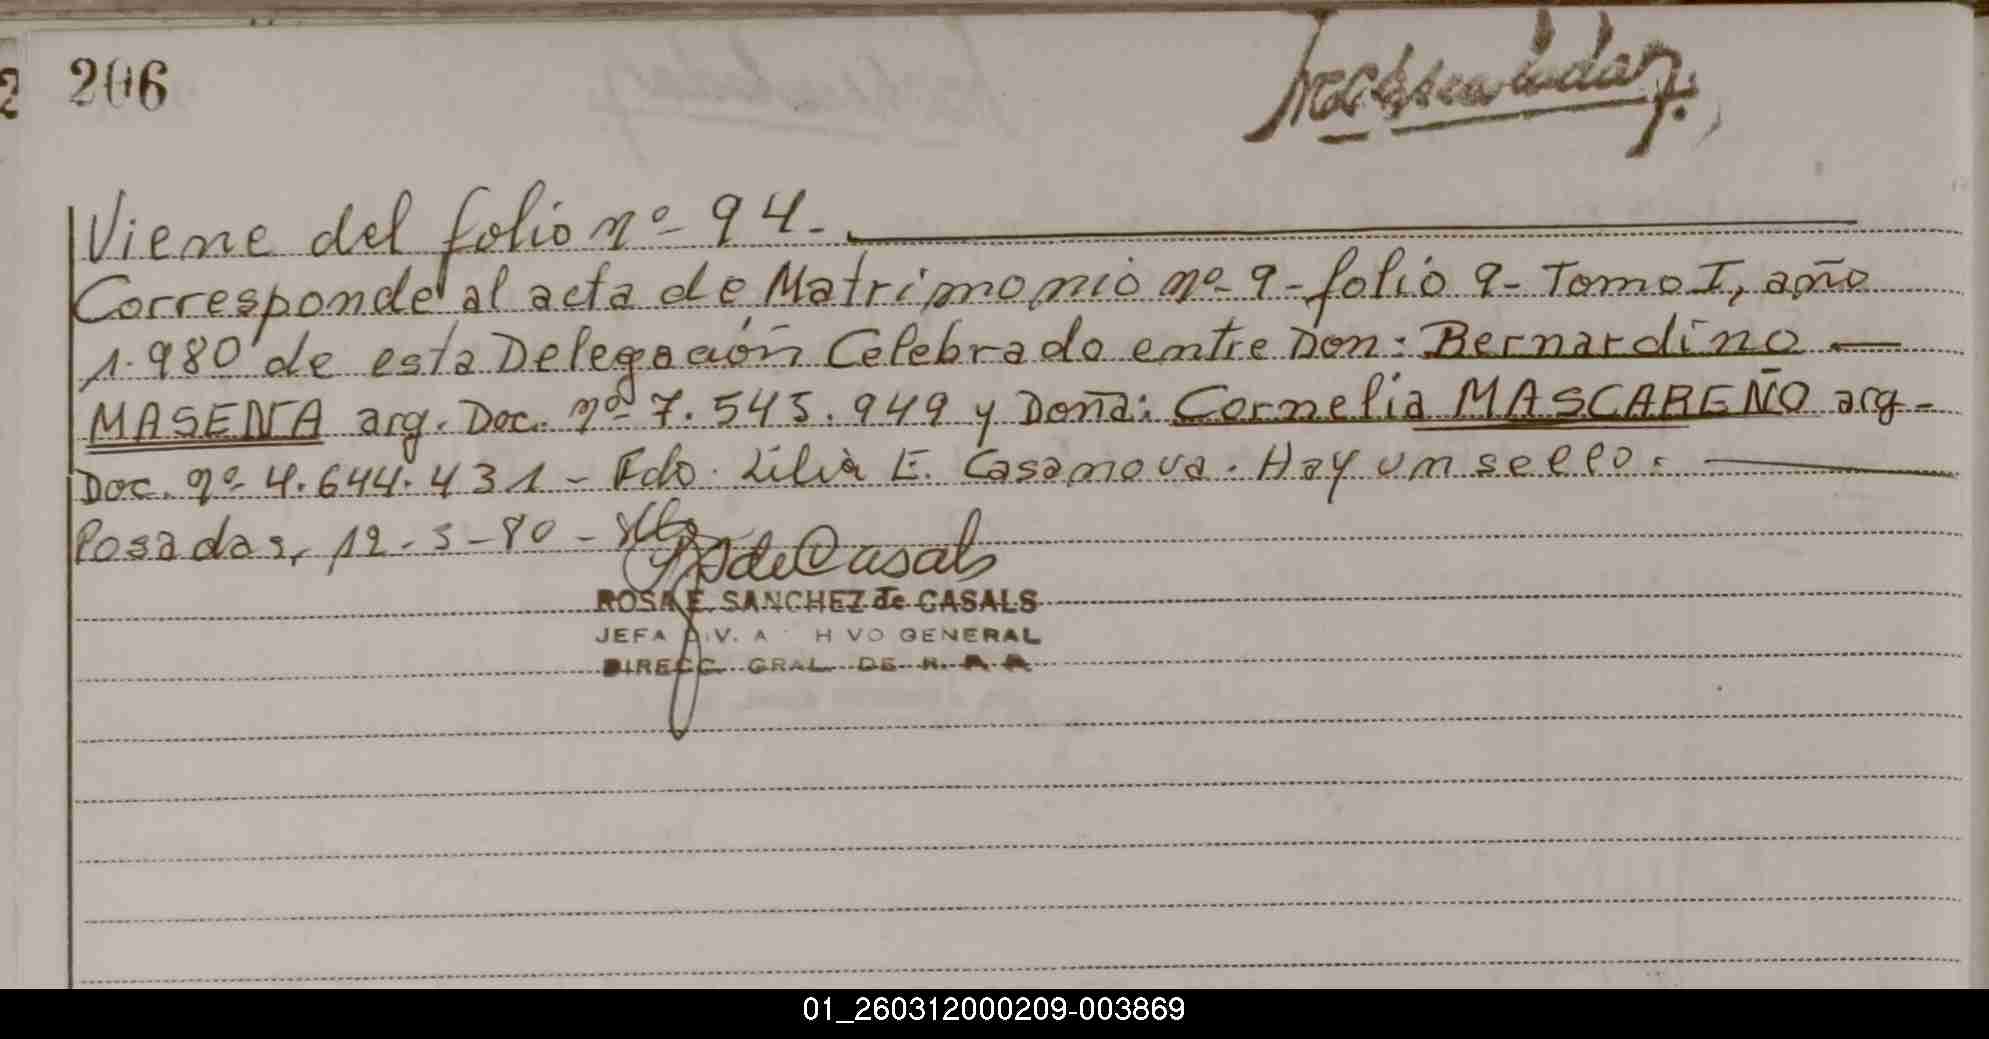 206
Viene del folio nº 94.-
Corresponde al acta de Matrimonio nº 9 - folio 9 - Tomo I, año
1.980 de esta Delegación Celebrado entre Don: Bernardino
MASENA arg. Doc. nº 7.545.949 y Doña: Cornelia MASCAREÑO arg-
Doc. nº 4.644.431 - Fdo. Lilia E. Casanova. Hay un sello.
Posadas, 12-5-80-
de Casals
ROSA E. SANCHEZ de CASALS
JEFA DIV. A HIVO GENERAL
DIRECC. GRAL. DE R.
01_260312000209-003869